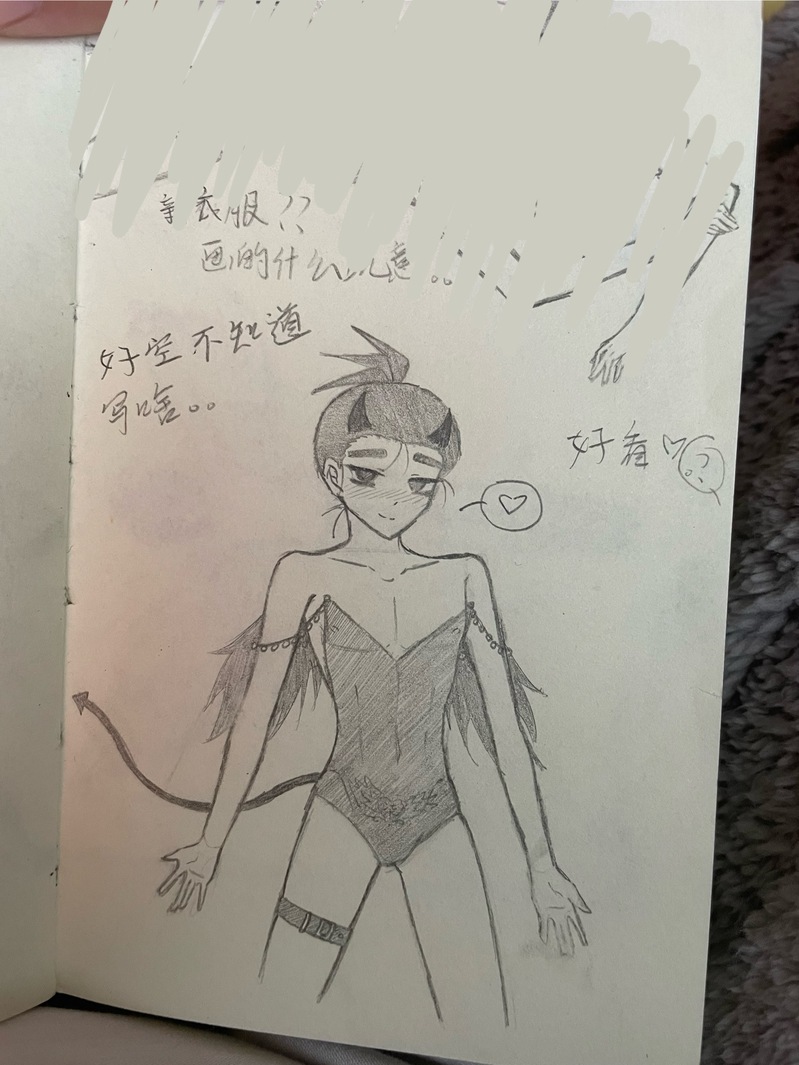 衣服??
画的什么玩意..
好空不知道
写啥..
好看
?